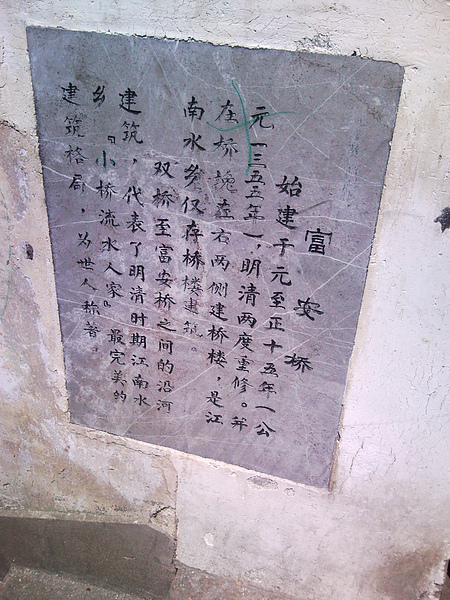 富安桥
始建于元至正十五年一公
元一三五五年一,明清两度重修。并
在桥挽左右两侧建桥楼,是江
南水乡仅存桥楼建筑。
双桥至富安桥之间的沿河
建筑,代表了明清时期江南水
乡『小桥流水人家』最完美的
建筑格局,为世人称著。